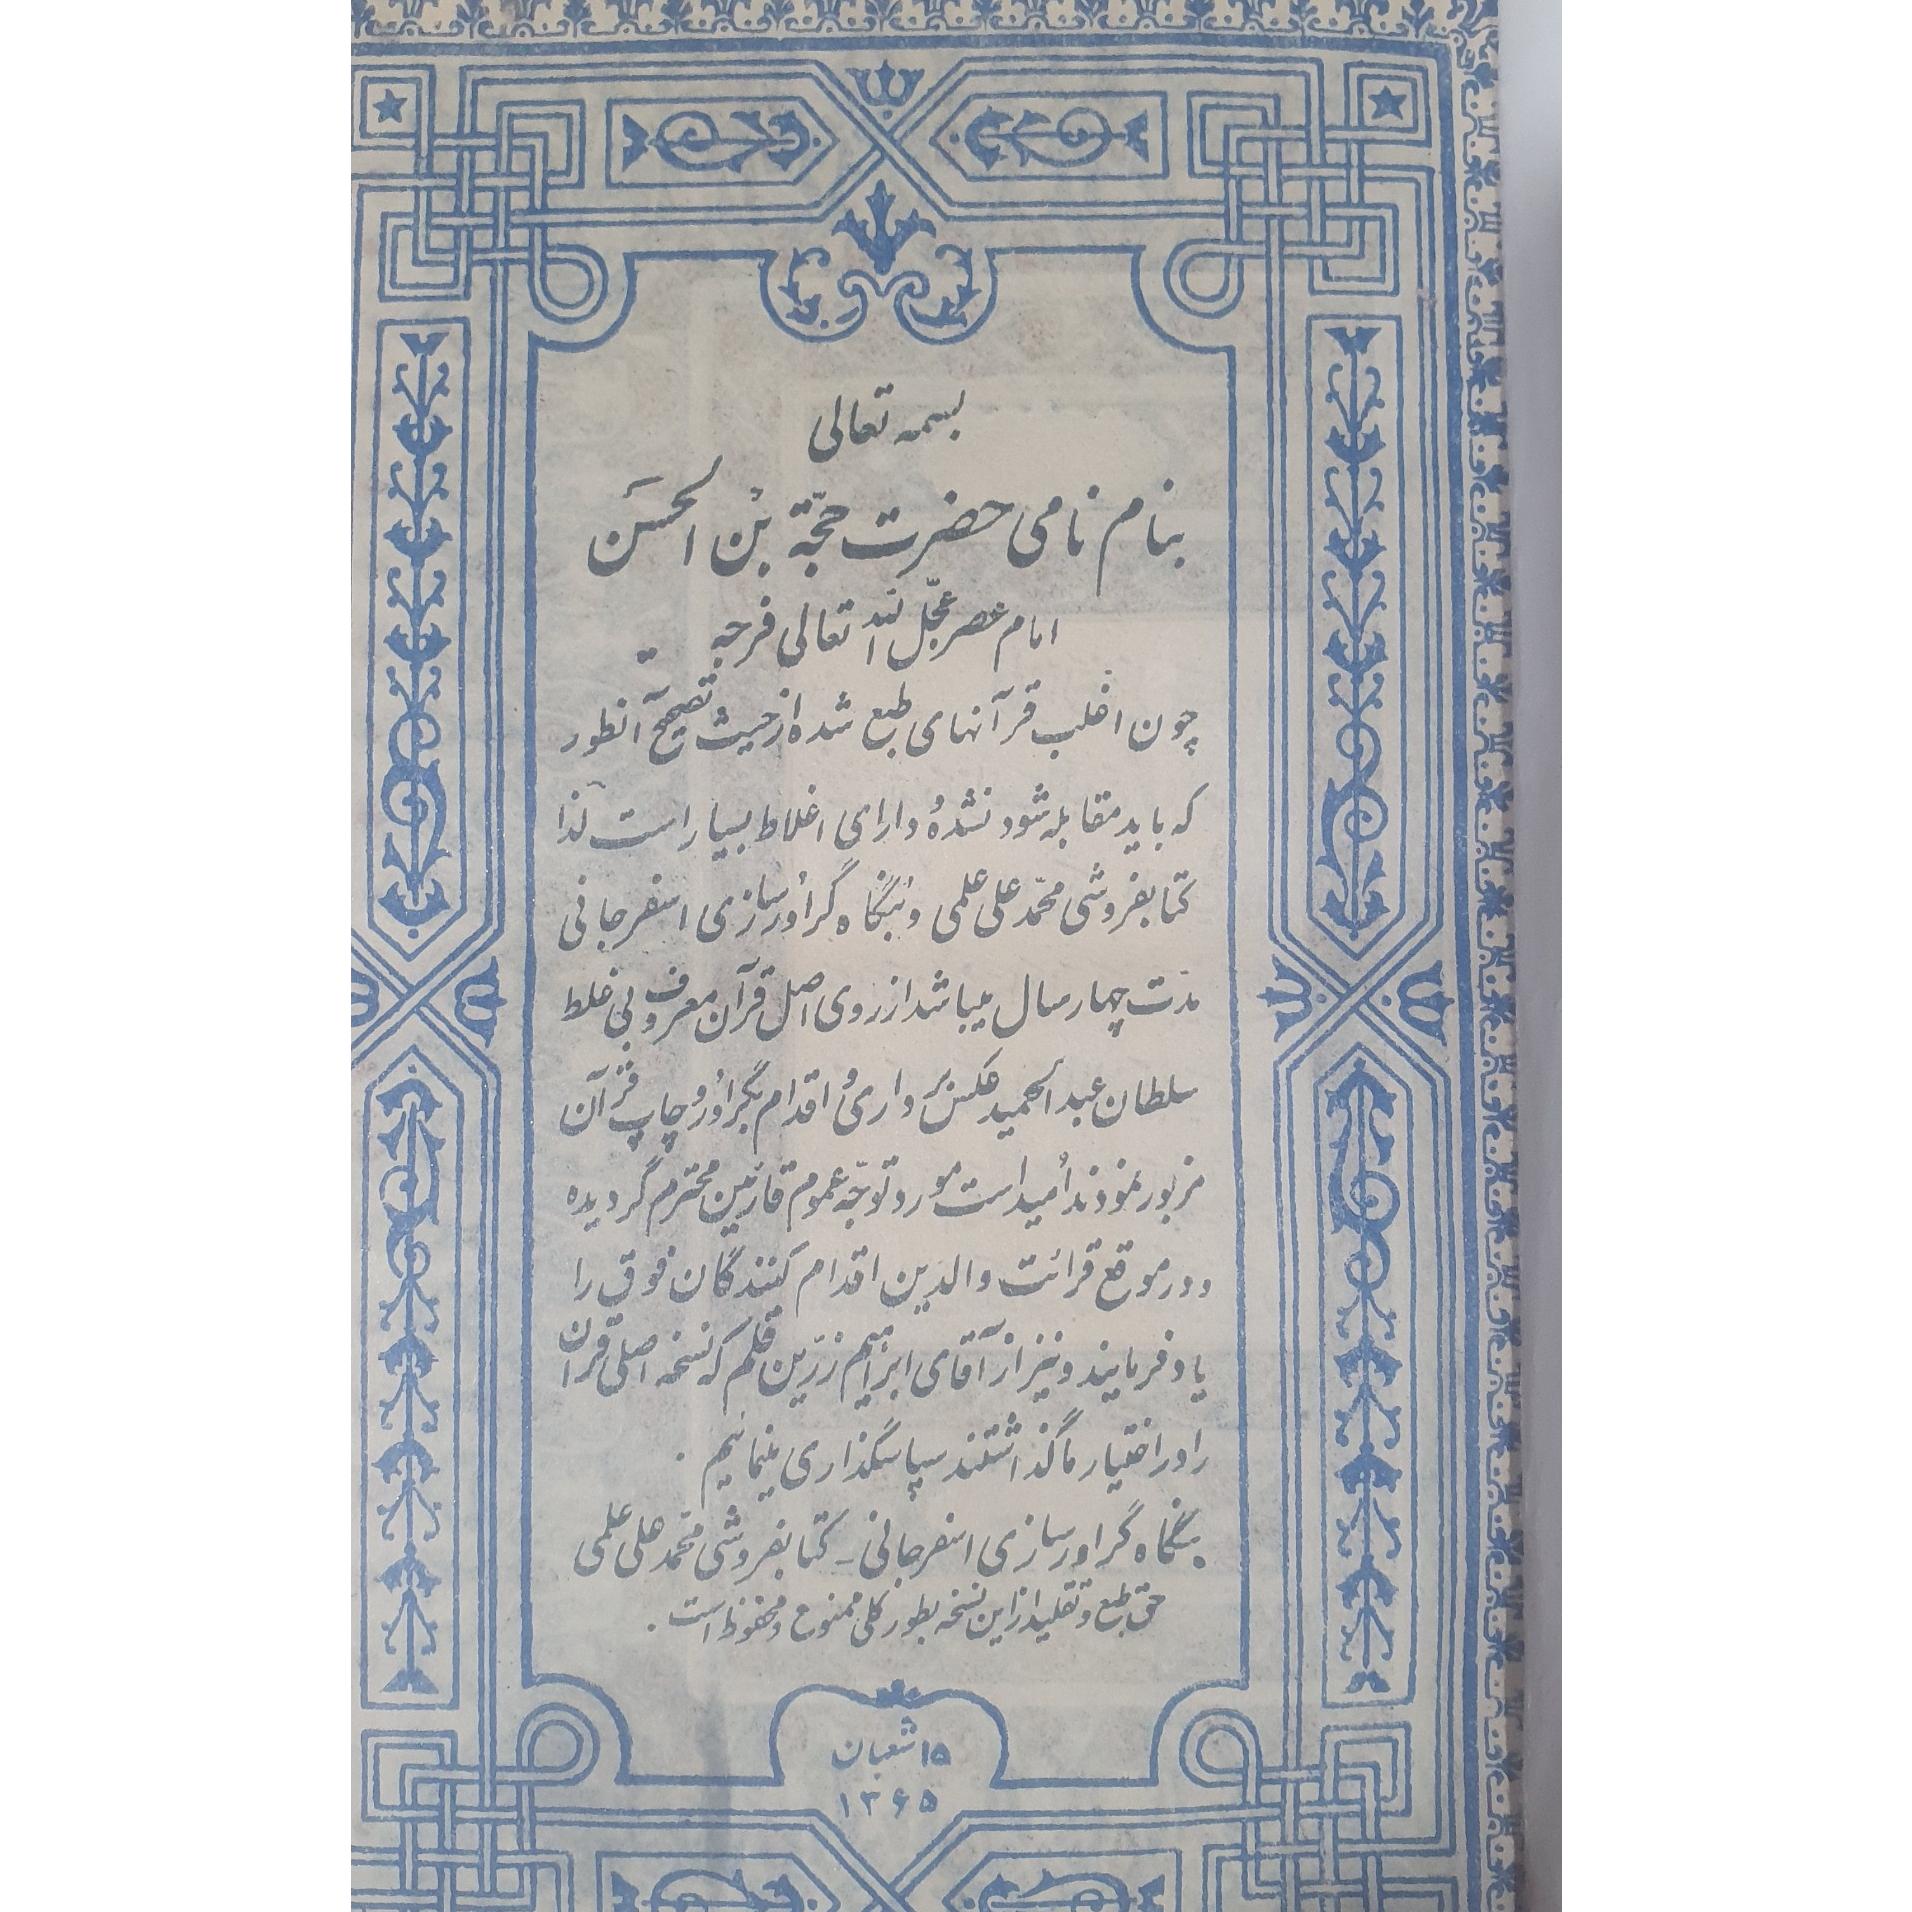 بسمه تعالی
بنام نامی حضرت حجّة بُن الحسَن
امام عصر عجّل الله تعالی فرجه
چون اغلب قرآنهای طبع شده از حیث تصحیح آنطور
که باید مقابله شود نشدهُ دارای اغلاط بسیار است لذا
کتابفروشی محمّد علی علمی وبُنگاه گراوُرسازی اسفرجانی
مدّت چهار سال میباشد از روی اصل قرآن معروف بی غلط
سلطان عبدالحمید عکس برداریُ اقدام بگراوُرو چاپ قرآن
مزبور نمودند اُمید است مورد توجّه عموم قارئین محترم گردیده
ودر موقع قرائت والدین اقدام کنندگان فوق را
یاد فرمایند و نیز از آقای ابراهیم زرّین قلم که نسخه اصلی قرآن
را در اختیار ما گذاشتند سپاسگذاری مینمائیم .
بنگاه گراورسازی اسفرجانی - کتابفروشی محمّد علی علمی
حق طبع و تقلید از این نسخه بطور کلی ممنوع و محفوظ است .
۱۵ شعبان
۱۳۶۵